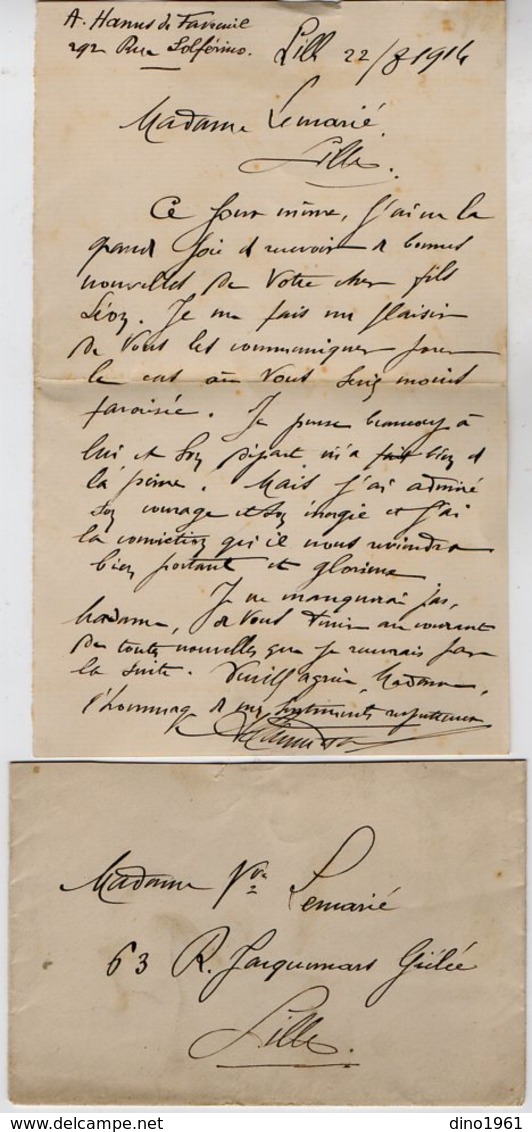 A. Hanus de
292 Rue Solférino.
Lille 22/8 1914
Madame Lemarié.
Lille.
Ce jour même, j'ai eu la
grand joie de recevoir de bonnes
nouvelles de Votre cher fils
Léon. Je me fais un plaisir
de Vous les communiquer pour
le cas où Vous seriez moins
favorisée. Je pense beaucoup à
lui et son départ m'a fait bien de
la peine. Mais j'ai admiré
son courage et son énergie et j'ai
la conviction qu'il nous reviendra
bien portant et glorieux
Je ne manquerai pas,
Madame, de Vous tenir au courant
de toutes nouvelles que je recevrais par
la suite. Veuillez agréer, Madame,
l'hommage de mes sentiments respectueux
Madame Vve Lemarié
63 R. Jacquemars Giélée
Lille.
dino1961